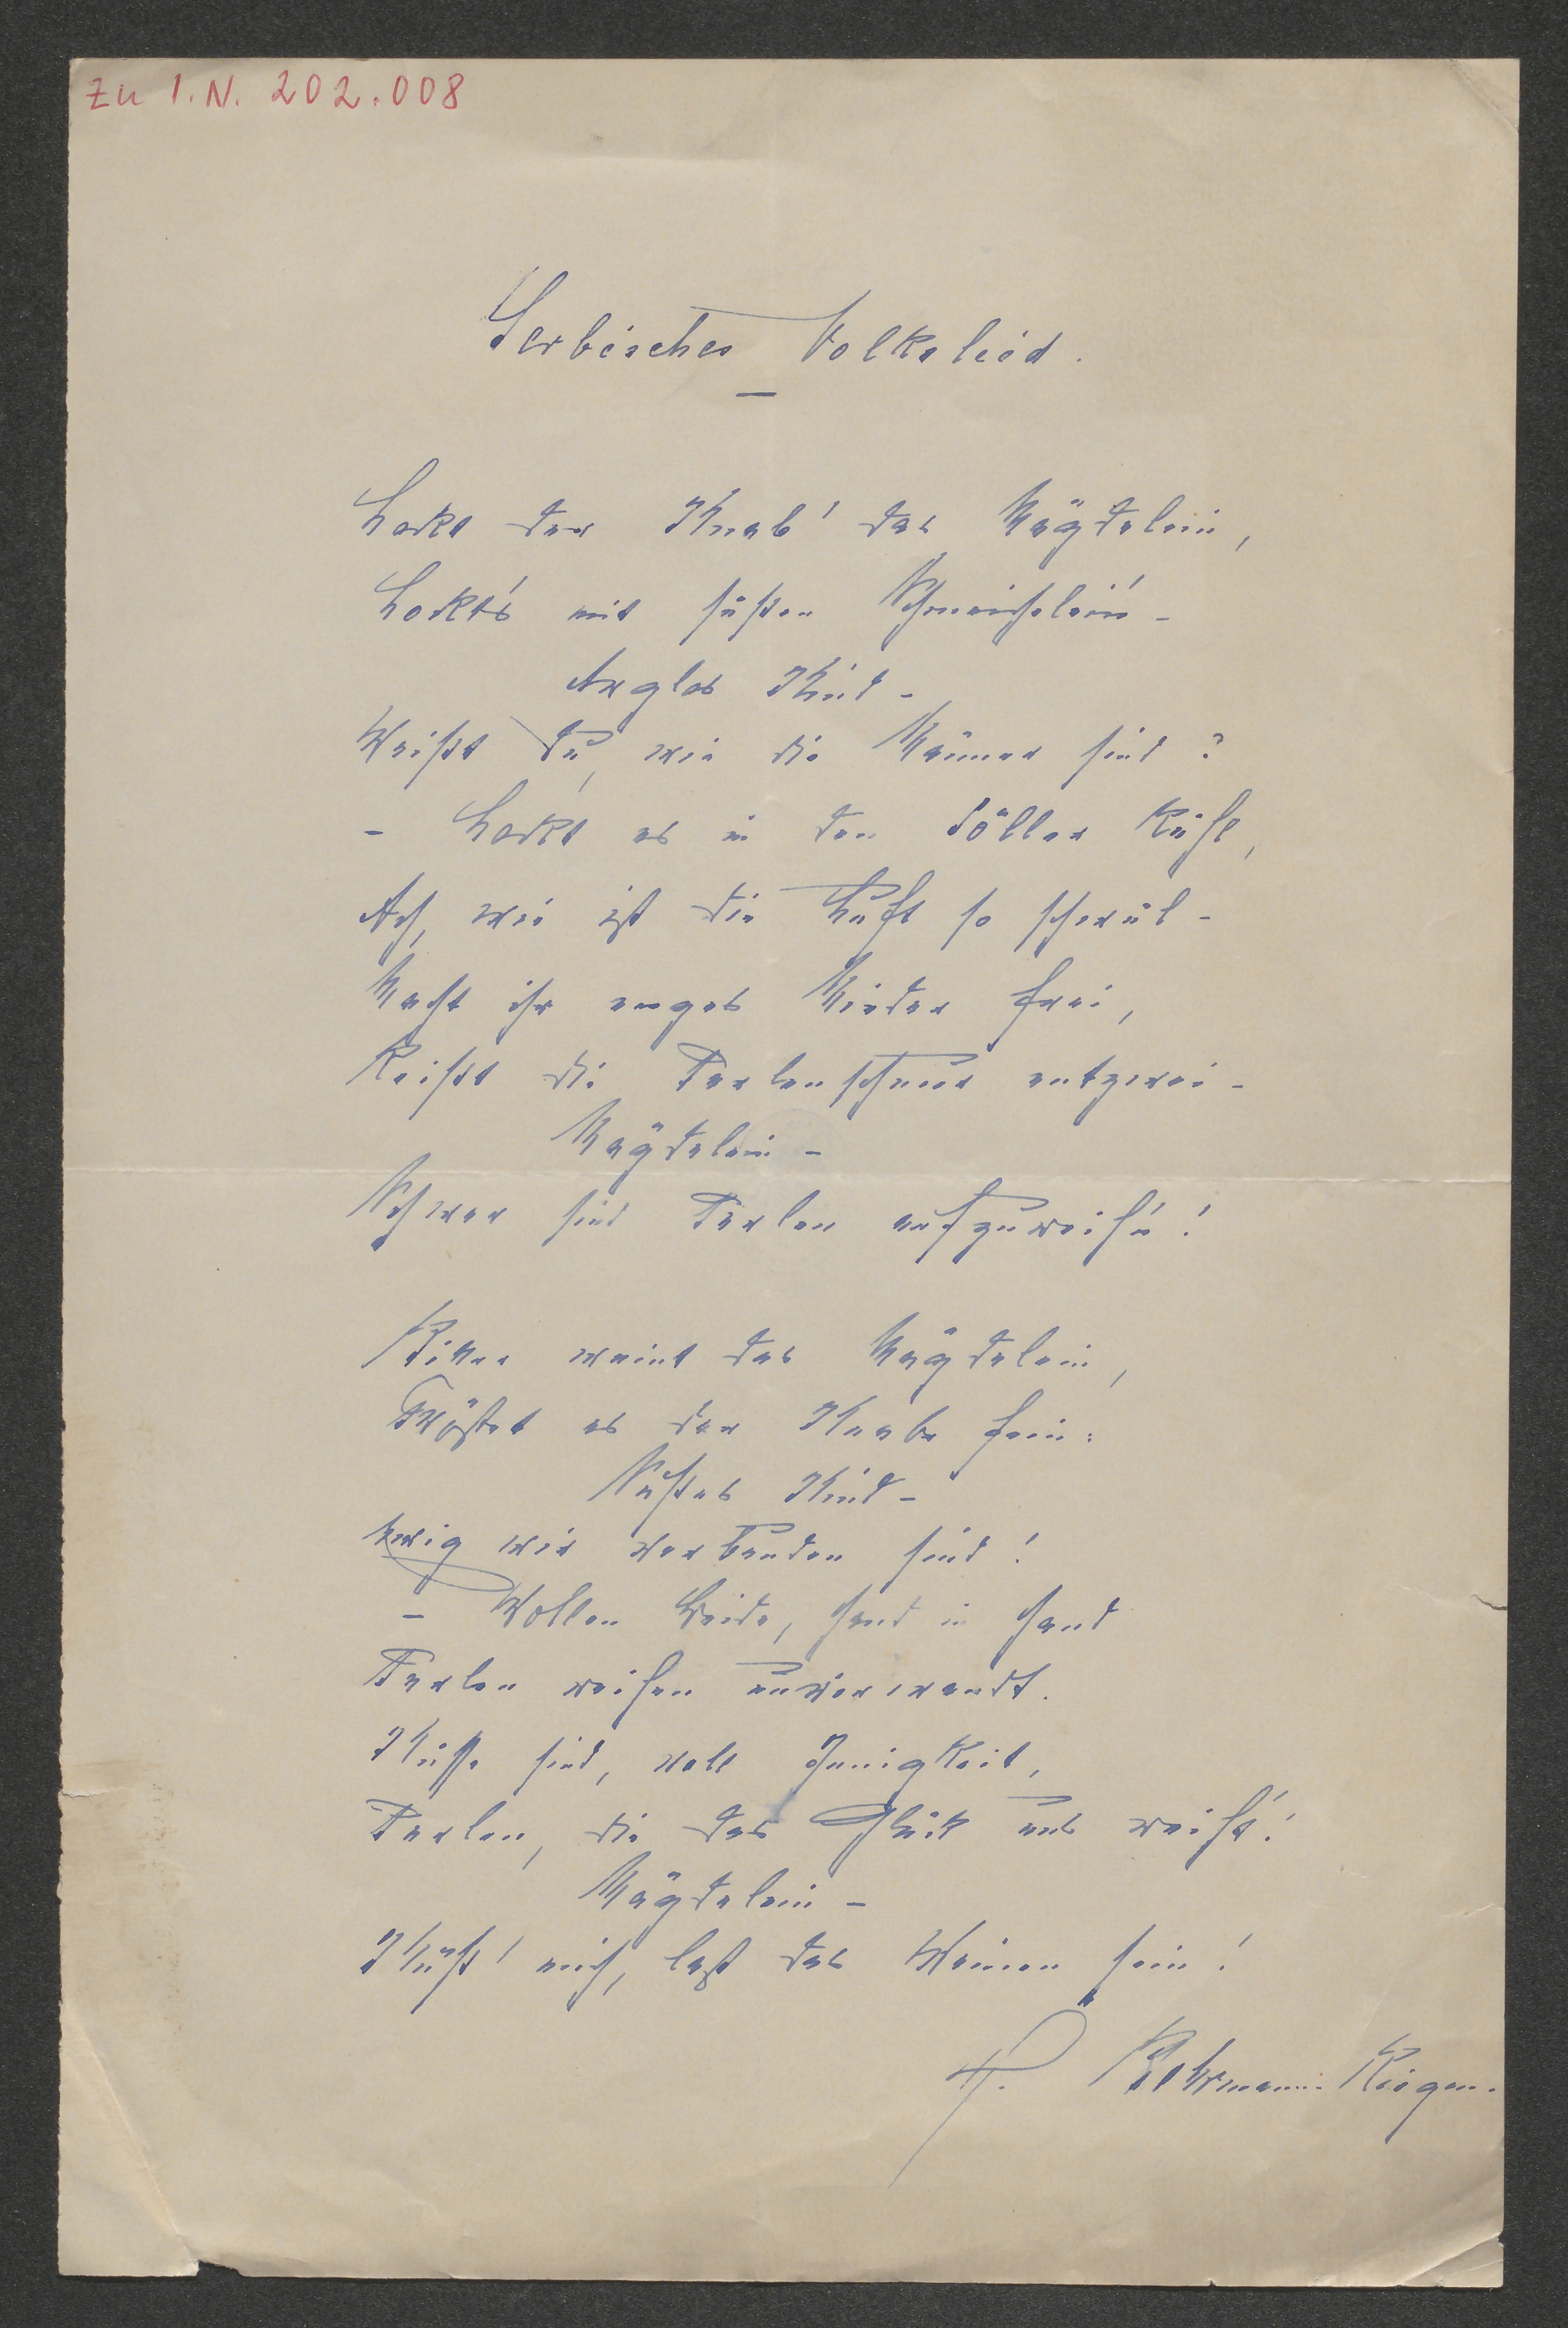 Zu I.N. 202.008
Serbisches Volkslied.
Lockt der Knab' das Mägdelein,
Lockt's mit süßen Schmeichelei'n -
Arglos Kind -
Weißt du, wie die Männer sind?
- Lockt es in den Söller kühl,
Ach, wie ist die Luft so schwül -
Macht ihr enges Mieder frei,
Reißt die Perlenschnur entzwei -
Mägdelein -
Schwer sind Perlen aufzureih'n!
Bitter weint das Mägdelein,
Tröstet es der Knabe fein:
Süßes Kind -
Ewig wir verbunden sind!
- Wollen Beide, Hand in Hand
Perlen reihen unverwandt.
Küsse sind, voll Innigkeit,
Perlen, die das Glück uns reiht!
Mägdelein -
Küß' mich, laß das Weinen sein!
Riegen.